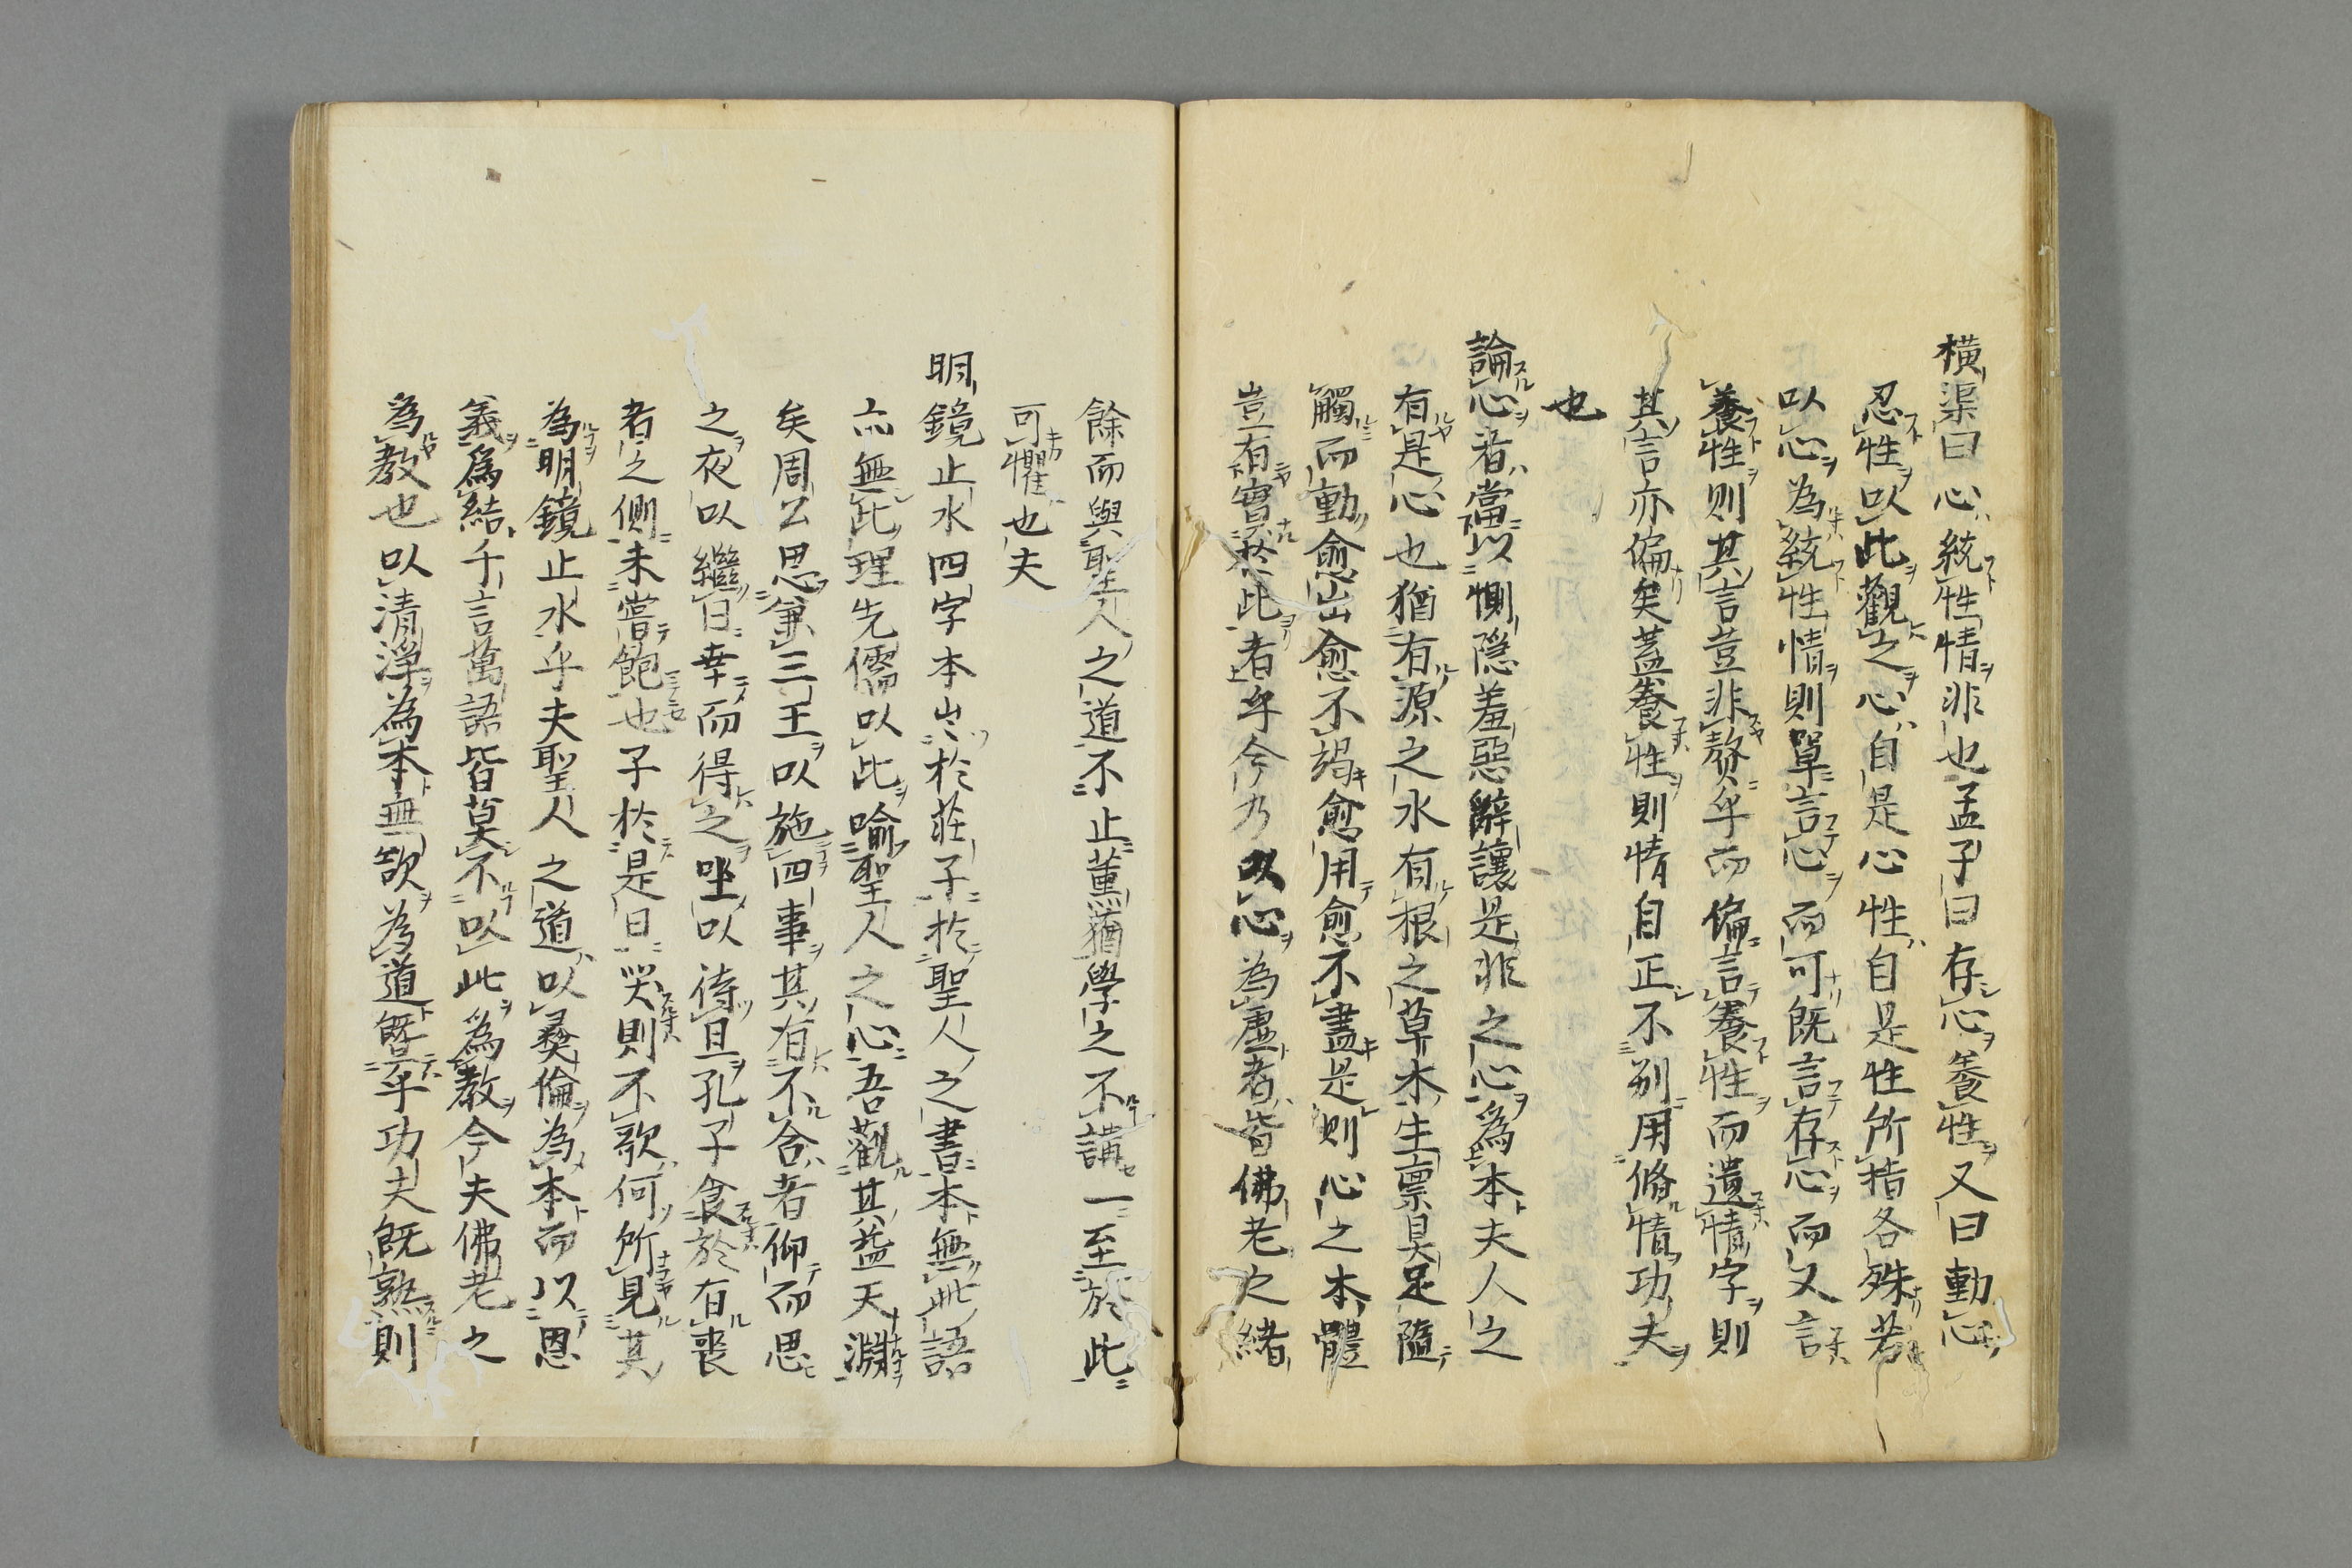 横渠曰心統性情非也孟子曰存心養性又曰動心
忍性以此觀之心自是心性自是性所指各殊若
以心為統性情則單言心而可既言存心而又言
養性則其言豈非贅乎而偏言養性而遺情字則
其言亦偏矣蓋養性則情自正不別用脩情功夫
也
論心者當以惻隱羞惡辭讓是非之心為本夫人之
有是心也猶有源之水有根之草木生禀具足隨
觸而動愈出愈不竭愈用愈不盡是則心之本體
豈有實於此者乎今乃以心為虛者皆佛老之緒
餘而與聖人之道不止薰蕕學之不講一至於此
可懼也夫
明鏡止水四字本出於莊子於聖人之書本無此語
亦無此理先儒以此喻聖人之心吾觀其益天淵
矣周公思兼三王以施四事其有不合者仰而思
之夜以繼日幸而得之坐以待旦孔子食於有喪
者之側未嘗飽也子於是日哭則不歌何所見其
為明鏡止水乎夫聖人之道以彜倫為本而以恩
義為結千言萬語皆莫不以此為教今夫佛老之
為教也以清淨為本無欲為道曁乎功夫既熟則